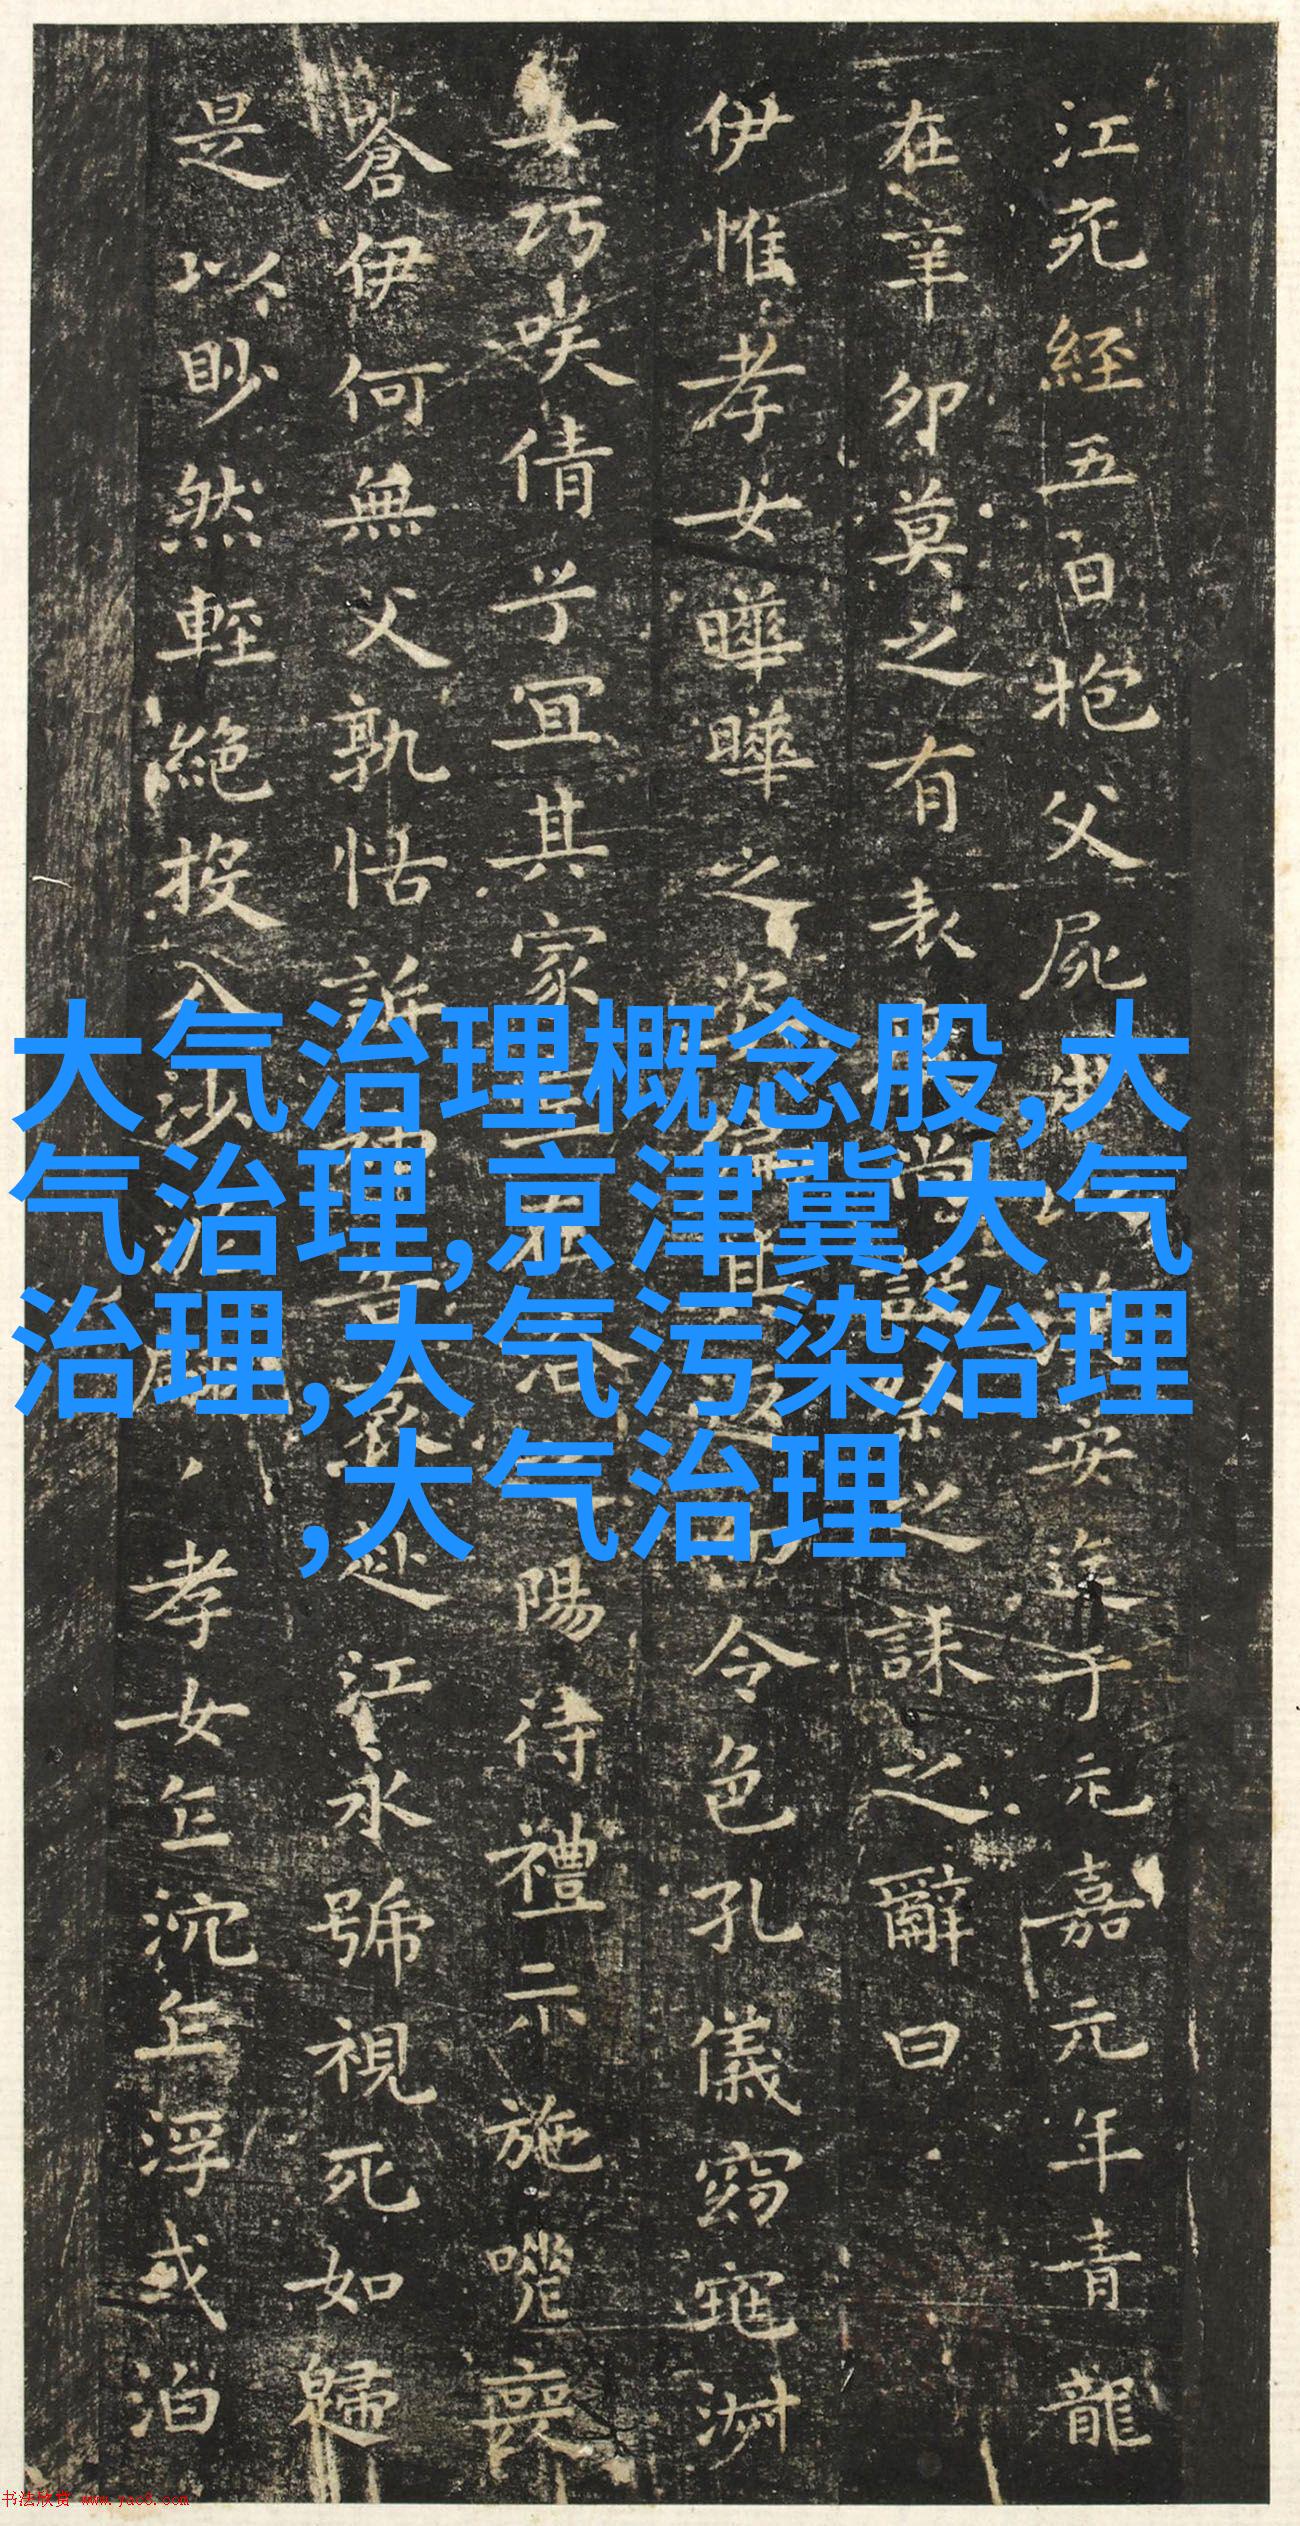 江死經五百抱父屍出
安送于元嘉元年青龍
在辛卯莫之有表
之誄之辭曰
伊惟孝女曄曄之姿偏其返
令色孔儀窈窕淑
女巧咲倩兮宜其家
陽待禮未施嗟喪
蒼伊何無父孰怙訴神告哀赴江永號視死如歸
是以眇然輕絕投入沙泥
孝女乍沉乍浮或泊
大气治理概念股,大
气治理,京津冀大气
治理,大气污染治理
,大气治理
书法欣赏 www.yac8.com